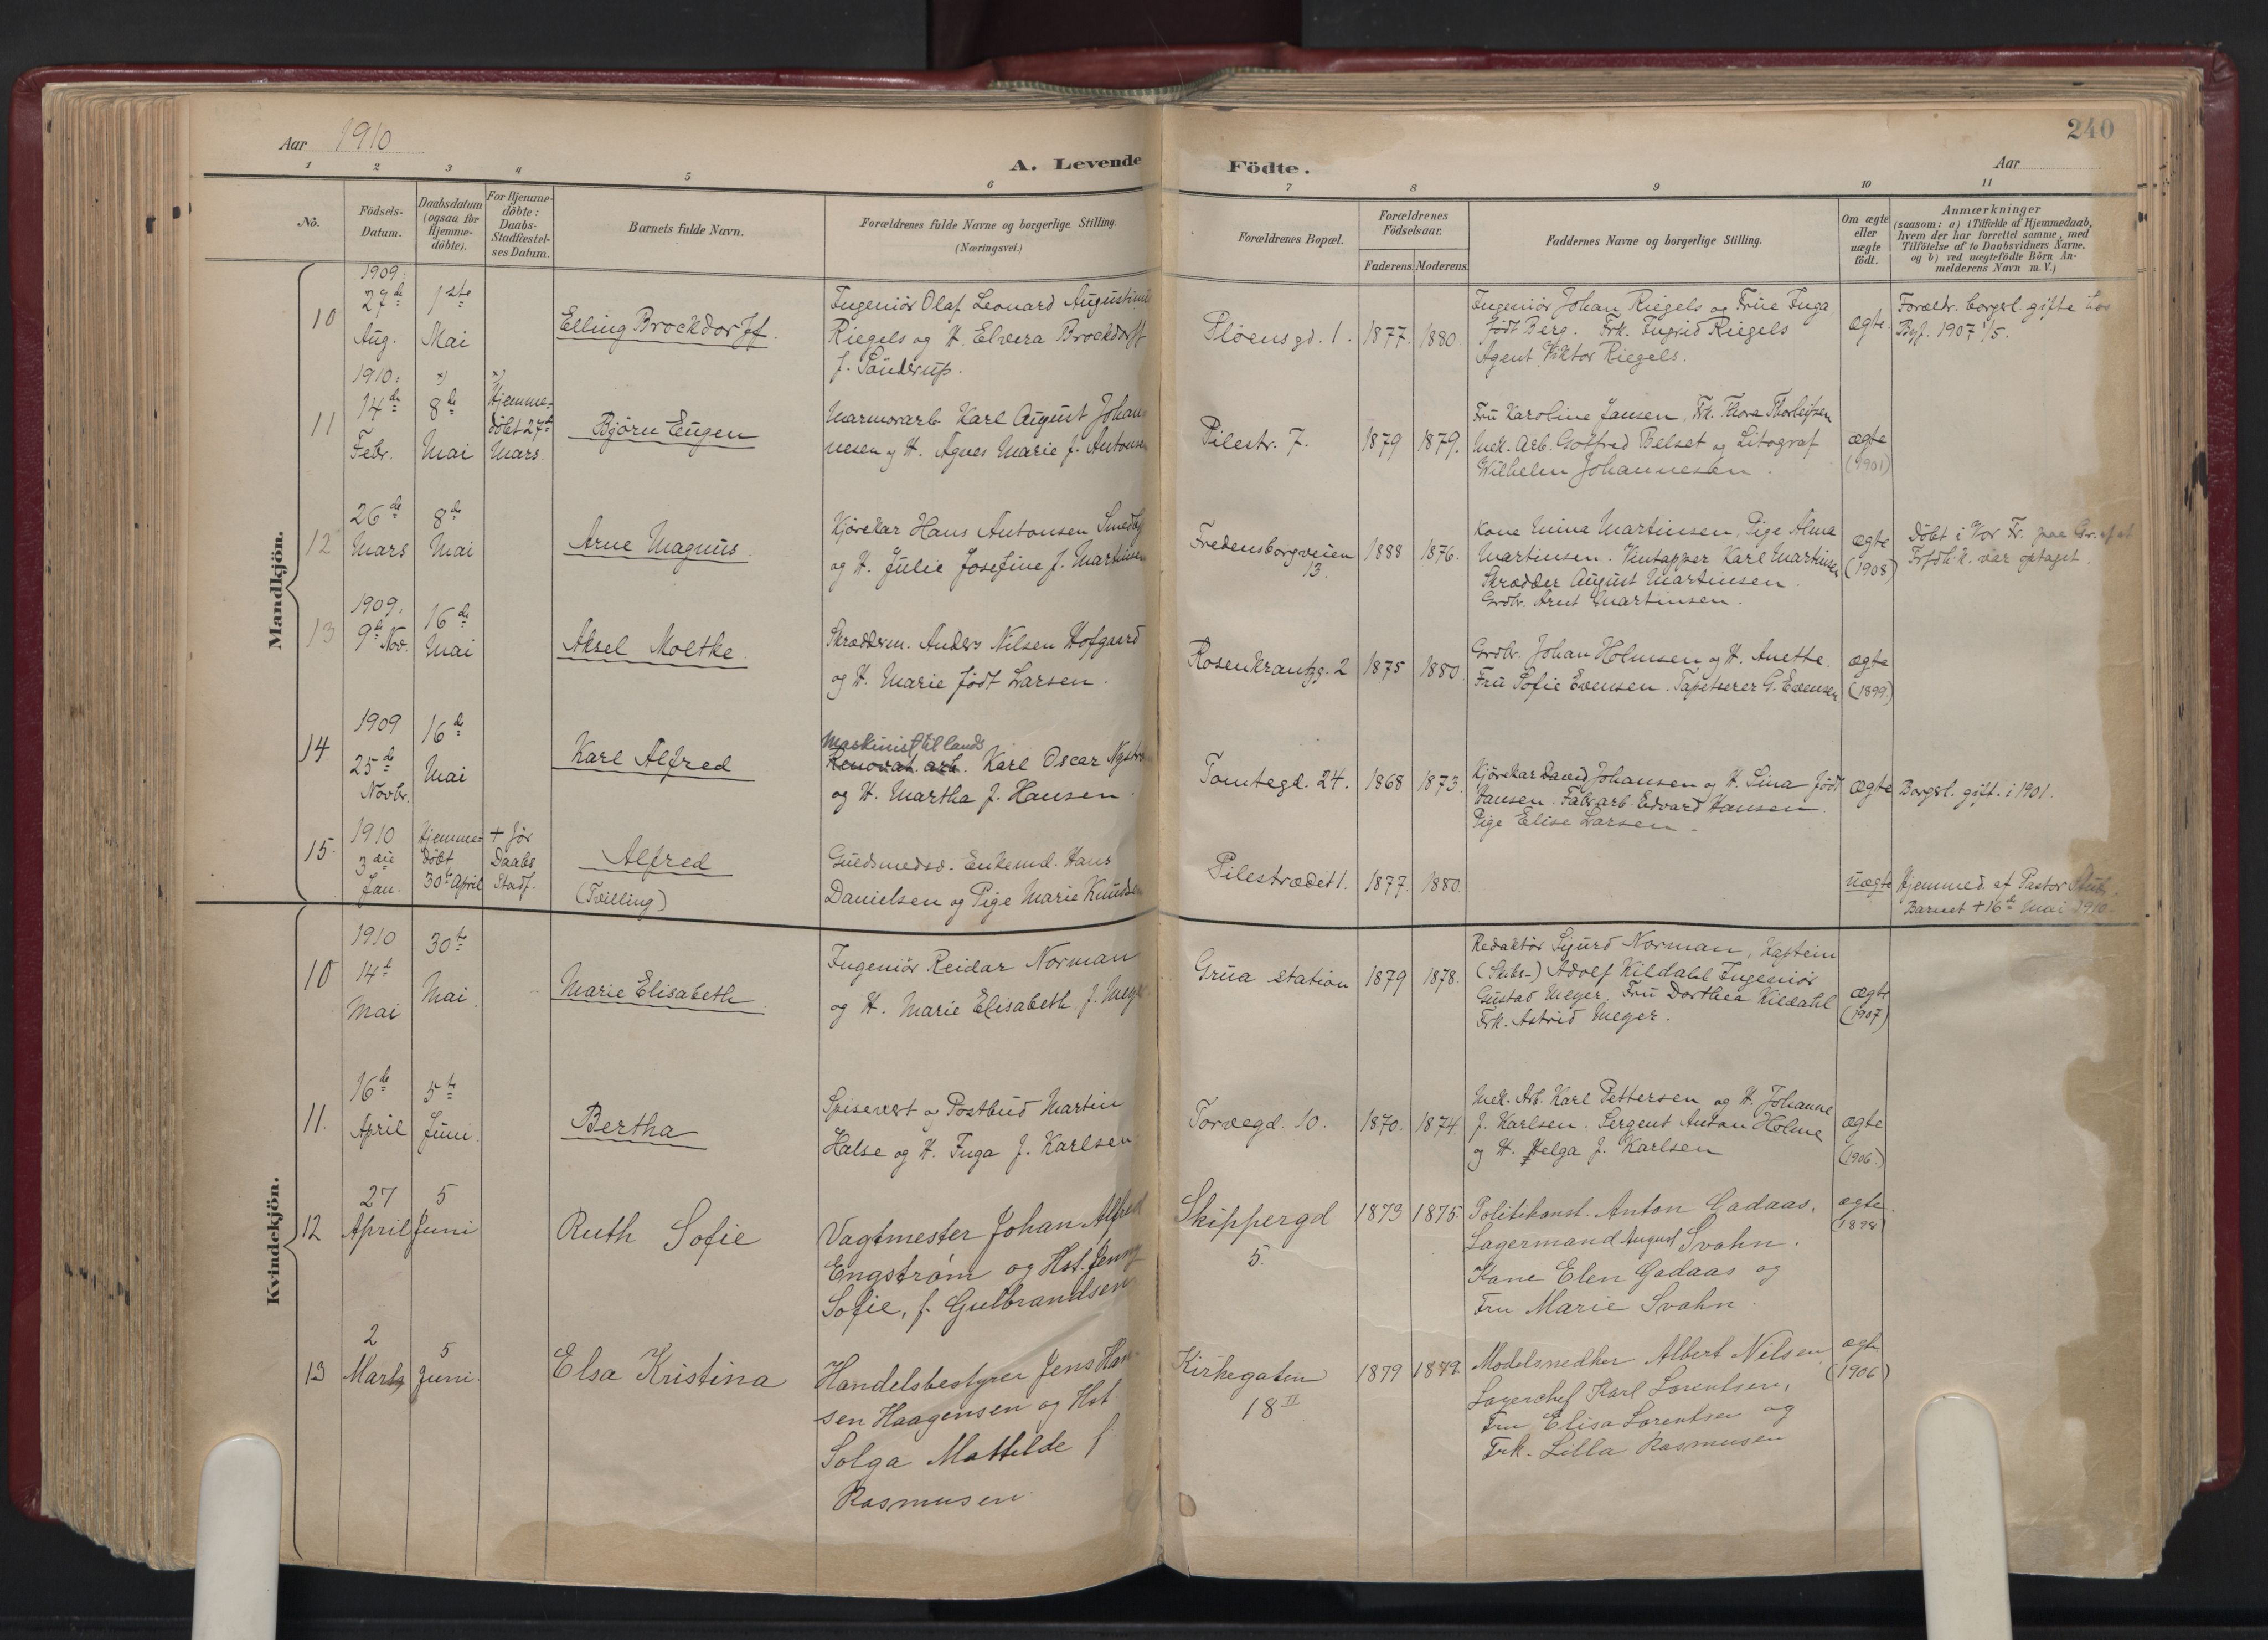 240
Aar 1910
A. Levende Födte.
Aar
1 2 3 4 5 6 7 8 9 10 11
No.
Födsels-
Datum.
Daabsdatum
(ogsaa for
Hjemme-
döbte).
For Hjemme-
döbte:
Daabs-
Stadfæstel-
ses Datum.
Barnets fulde Navn.
Forældrenes fulde Navne og borgerlige Stilling.
(Næringsvei.)
Forældrenes Bopæl.
Forældrenes
Födselsaar.
Faderens. Moderens.
Faddernes Navne og borgerlige Stilling.
Om ægte
eller
uægte
födt.
Anmærkninger
(saasom: a) i Tilfælde af Hjemmedaab,
hvem der har forrettet samme, med
Tilföielse af to Daabsvidners Navne,
og b) ved uægtefödte Börn An-
melderens Navn m. V.)
Mandkjön.
10
1909.
27de
Aug.
1ste
Mai
Elling Brockdorff.
Ingeniör Olaf Leonard Augustinus
Riegels og H. Elvera Brockdorff
f. Sönderup.
Plöensgd. 1.
1877. 1880.
Ingeniör Johan Riegels og Frue Inga
födt Berg. Frk. Ingrid Riegels
Agent Viktor Riegels.
ægte.
Forældr. borgerl. gifte
Byf. 1907 1/5.
11
1910.
14de
Febr.
x)
8de
Mai
x)
Hjemme-
döbt 27de
Mars.
Björn Eugen
Marmorarb. Karl August Johan-
nesen og H. Agnes Marie f. Antonsen
Pilestr. 7.
1879 1879.
Fru Karoline Jansen, Frk. Thora Thorleifsen
Mek. Arb. Gotfred Belset og Litograf
Wilhelm Johannesen.
ægte
(1901)
12
26de
Mars
8de
Mai
Arne Magnus.
Kjörekar Hans Antonsen Smedby
og H. Julie Josefine f. Martinsen
Fredensborgveien
13.
1888 1876.
Kone Mina Martinsen, Pige Alma
Martinsen. Vintapper Karl Martinsen
Skrædder August Martinsen.
Grdbr. Arnt Martinsen.
ægte
(1908)
Döbt i Vor Fr. paa Gr. af at
Trfdh.k. var optaget.
13
1909.
9de Nov.
16de
Mai
Aksel Moltke.
Skrædderm. Anders Nilsen Hofgaard
og H. Marie födt Larsen.
Rosenkrantzg. 2
1875 1880.
Grdbr. Johan Holmsen og H. Anette.
Fru Sofie Evensen. Tapetserer G. Evensen.
ægte
(1899)
14
1909
25de
Novbr.
16de
Mai
Karl Alfred
Maskinist til lands
Renovat. arb. Karl Oscar Nyström
og H. Martha f. Hansen.
Tomtegd. 24.
1868 1873.
Kjörekar David Johansen og H. Lina födt
Hansen. Fabr.arb. Edvard Hansen.
Pige Elise Larsen.
ægte
Borgerl. gift. i 1901.
15.
1910
3die
Jan.
Hjemme-
döbt
30te April
+ för
Daabs
Stadf.
Alfred
(Tvilling)
Guldsmedsv. Enkemd. Hans
Danielsen og Pige Marie Knudsen
Pilestrædet 1.
1877. 1880.
uægte
Hjemmed. af Pastor
Barnet + 16de Mai 1910.
Kvindekjön.
10
1910
14de
Mai
30te
Mai.
Marie Elisabeth.
Ingeniör Reidar Norman
og H. Marie Elisabeth f. Meyer.
Grua station
1879 1878.
Redaktör Sigurd Norman, Kaptein
(Skibs-) Adolf Kildahl Ingeniör
Gustav Meyer. Fru Dorthea Kildahl
Frk. Astrid Meyer.
ægte
(1907)
11.
16de
April
5te
Juni.
Bertha
Spisevert og Postbud Martin
Halse og H. Inga f. Karlsen.
Torvegd. 10.
1870. 1874.
Mek. Arb. Karl Pettersen og H. Johanne
f. Karlsen. Sergent Anton Holme
og H. Helga f. Karlsen
ægte
(1906.)
12
27
April
5
Juni
Ruth Sofie
Vagtmester Johan Alfred
Engström og Hst. Jenny
Sofie, f. Gulbrandsen
Skippergd
5.
1873 1875.
Politikonst. Anton Gadaas,
Lagermand August Svahn.
Kone Elen Gadaas og
Fru Marie Svahn.
ægte.
(1898)
13
2
Marts
5
Juni.
Elsa Kristina
Handelsbestyrer Jens Han-
sen Haagensen og Hst.
Solga Mathilde f.
Rasmusen
Kirkegaten
18 II
1879 1879.
Modelsnedker Albert Nilsen
Lagerchef Karl Lorentsen,
Fru Elisa Lorentsen og
Frk. Lilla Rasmusen
ægte
(1906)